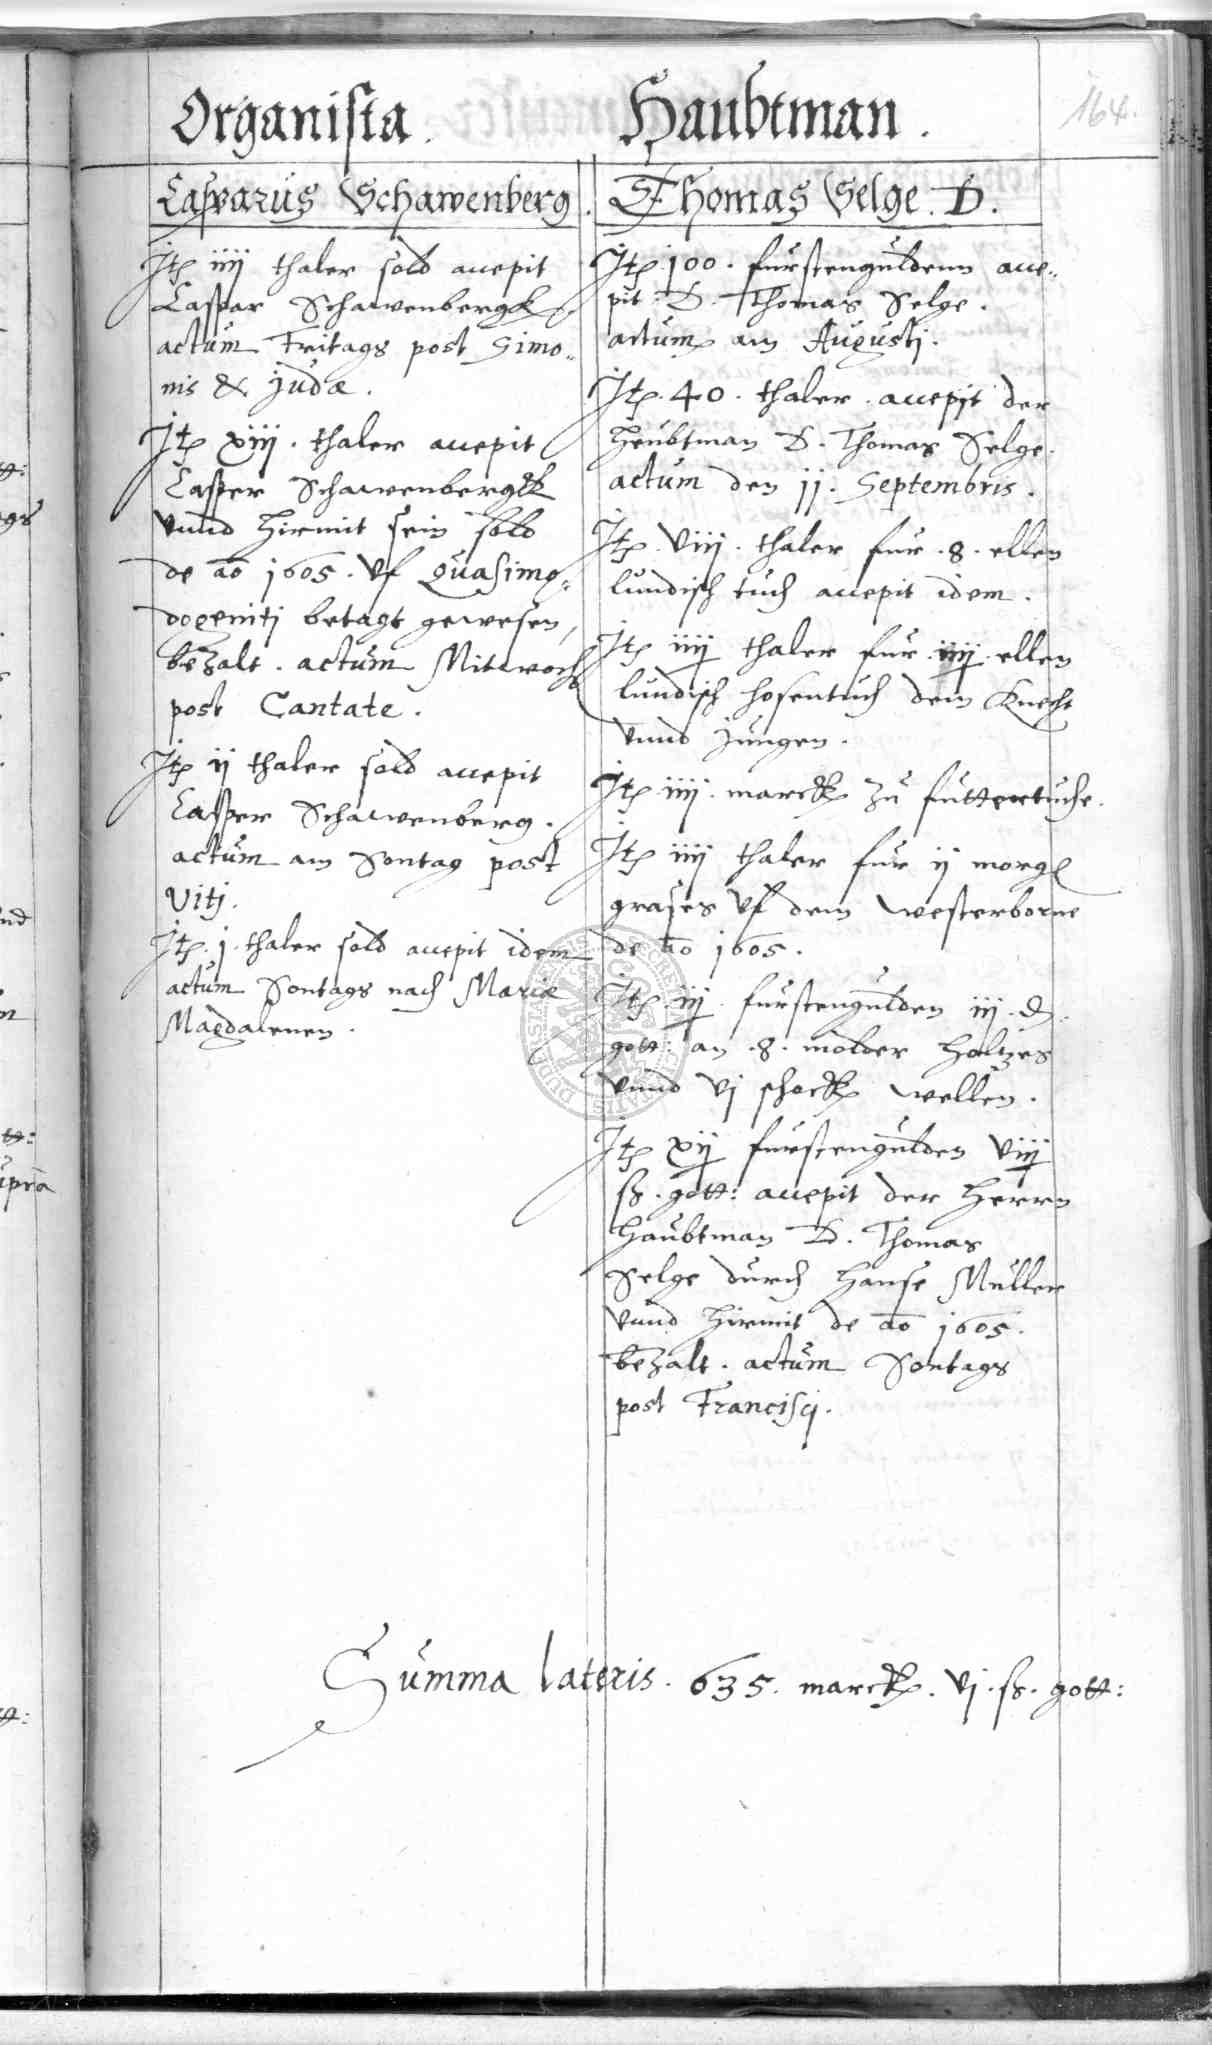 164.
Organista.
Casparus Schawenberg.
Jtē iiij thaler sold accepit
Caspar Schawenbergk
actum Fritags post Simo-
nis & Judæ.
Jtē xiij. thaler accepit
Casper Schawenbergk
vnnd hirmit sein sold
de ao 1605. vf Quasimo-
dogeniti betagt gewesen,
bezalt. actum Mitwoch
post Cantate.
Jtē ij thaler sold accepit
Casper Schawenberg.
actum am Sontag post
Viti.
Jtē. j. thaler sold accepit idem
actum Sontags nach Mariæ
Magdalenen.
Haubtman.
Thomas Selge. D.
Jtē. 100. furstenguldenn acce-
pit D. Thomas Selge.
actum am Augusti.
Jtē. 40. thaler. accepit der
Heubtman D. Thomas Selge.
actum den 11. Septembris.
Jtē. viij. thaler fur. 8. ellen
lundisch tuch accepit idem.
Jtē iiij thaler fur iiij ellen
lundisch hosentuch dem Knecht
vnnd jungen.
Jtē. iiij. marck zu futtertuche.
Jtē iiij thaler fur ij morg
grases vf dem Westerborne
de ao 1605.
Jtē. iij. furstengulden iij. d.
gott: an. 8. molder holtzes
vnnd vj schock wellen.
Jtē xij furstengulden viij
ß. gott: accepit der Herrn
Haubtman D. Thomas
Selge durch Hanse Muller
vnnd hirmit de ao 1605.
bezalt. actum Sontags
post Francisci.
Summa lateris. 635. marck. vj. ß. gott: